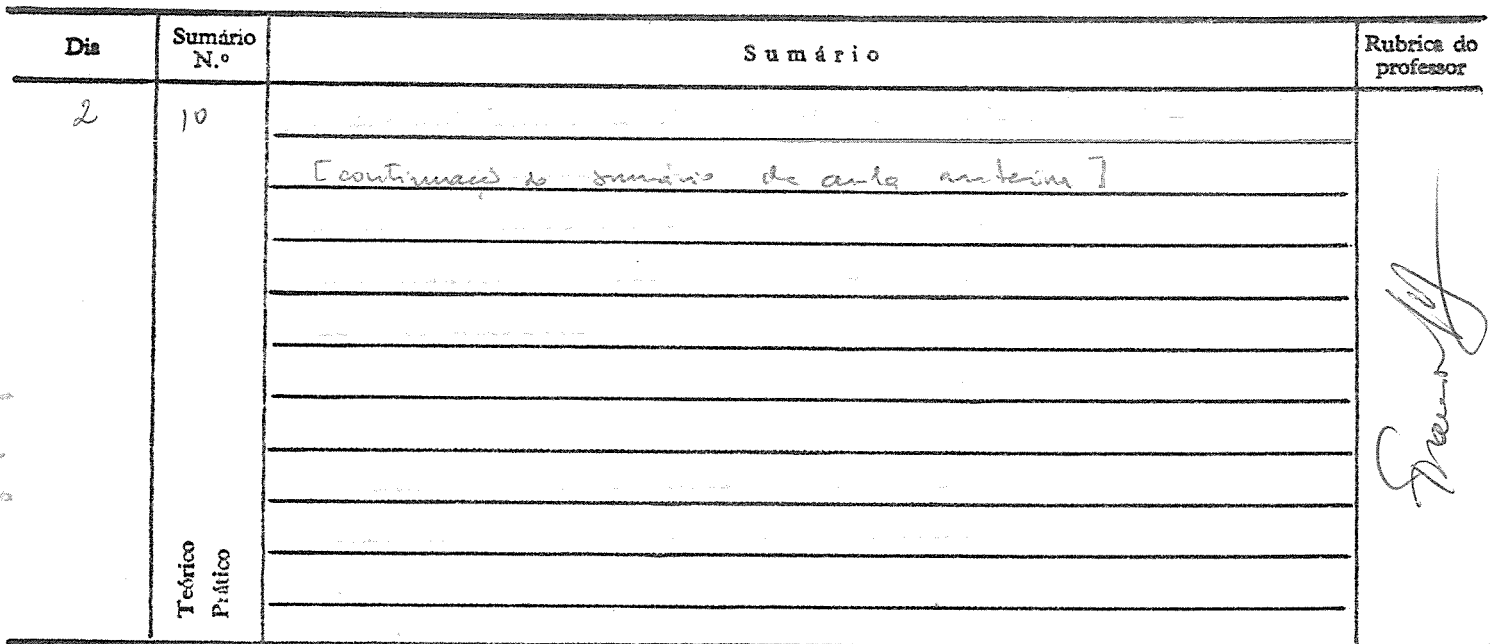 Dia
Sumário
N.º
Sumário
Rubrica do
professor
2
10
[continuação do sumário da aula anterior]
Teórico
Prático